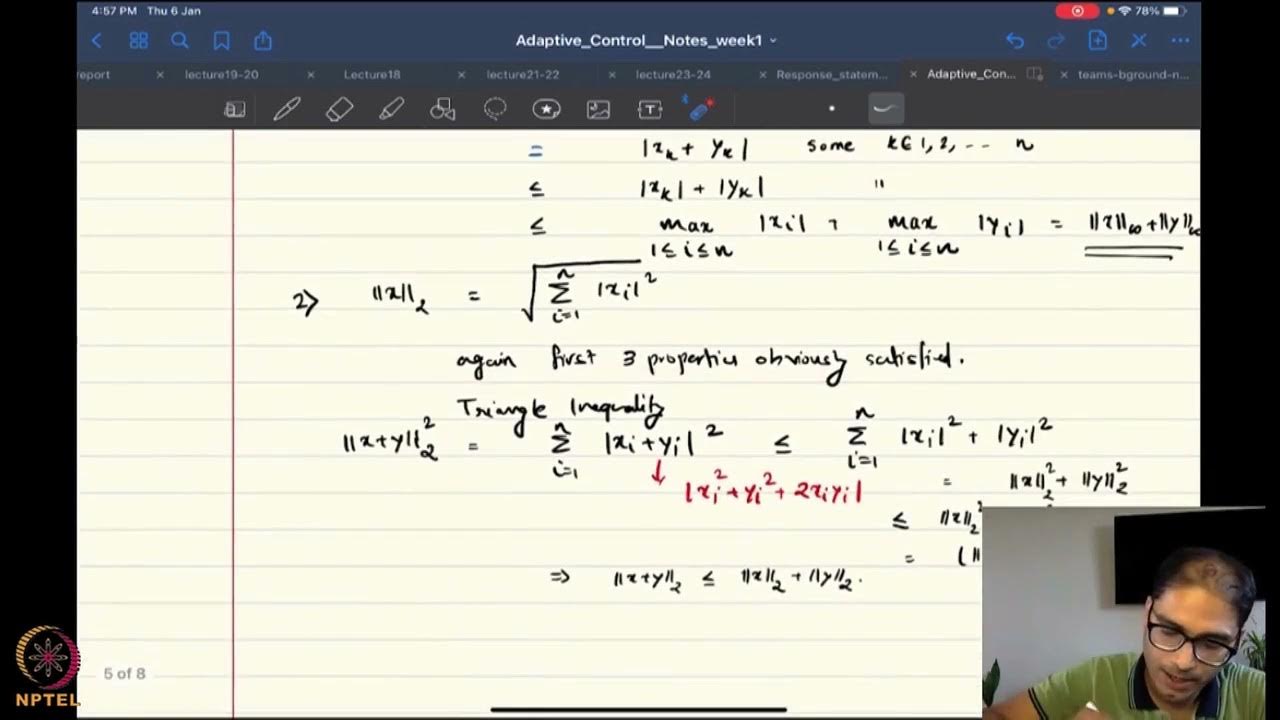 4:57 PM Thu 6 Jan
78%
Adaptive_Control__Notes_week1
report
lecture19-20
Lecture18
lecture21-22
lecture23-24
Response_statem...
Adaptive_Con...
teams-bground-n...
= |x_k + y_k| some k ∈ 1, 2, ... n
≤ |x_k| + |y_k| "
≤ max_{1≤i≤n} |x_i| + max_{1≤i≤n} |y_i| = ||x||_∞ + ||y||_∞
2> ||x||_2 = √(Σ_{i=1}^{n} |x_i|^2)
again first 3 properties obviously satisfied.
Triangle Inequality
||x+y||_2^2 = Σ_{i=1}^{n} |x_i + y_i|^2 ≤ Σ_{i=1}^{n} |x_i|^2 + |y_i|^2
↓ |x_i^2 + y_i^2 + 2x_iy_i|
= ||x||_2^2 + ||y||_2^2
≤ ||x||_2^2
= (||
⇒ ||x+y||_2 ≤ ||x||_2 + ||y||_2.
5 of 8
NPTEL